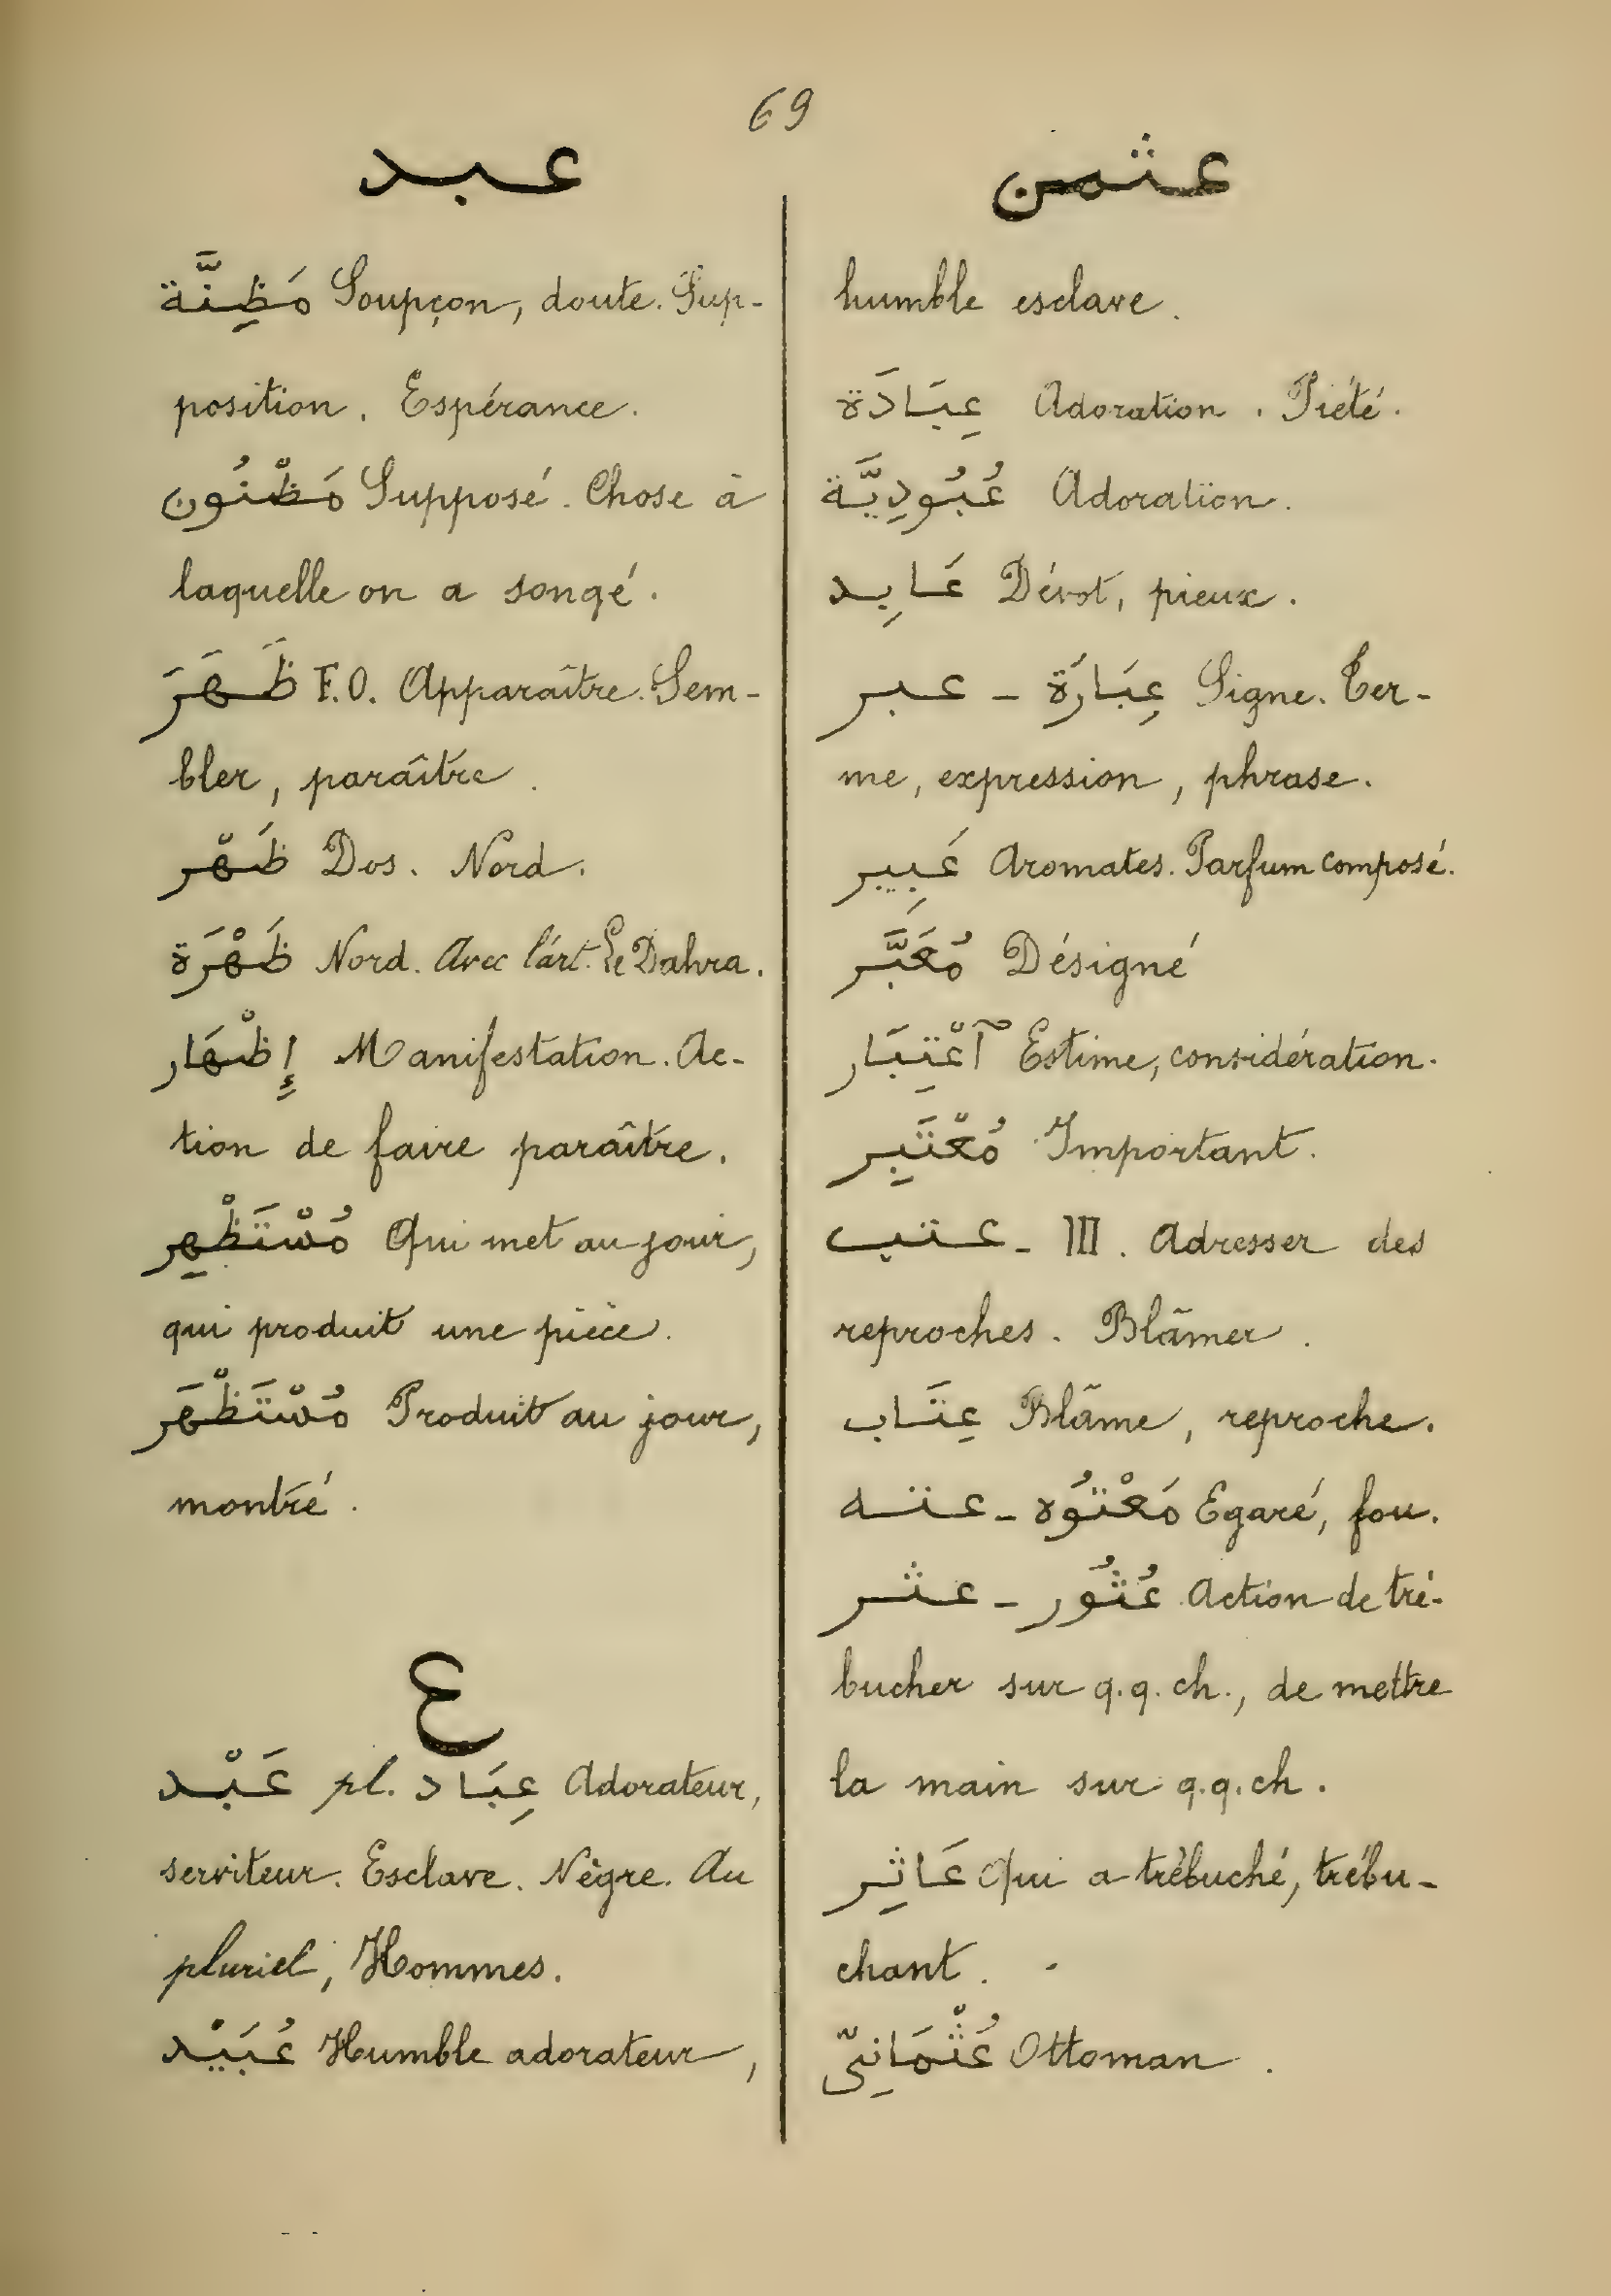 69
عبد
مَظِنَّة Soupçon, doute. Sup-
position. Espérance.
مَظْنُون Supposé. Chose à
laquelle on a songé.
ظَهَرَ F.O. Apparaître. Sem-
bler, paraître.
ظَهْر Dos. Nord.
ظَهْرَة Nord. Avec l'art. Le Dahra.
إِظْهَار Manifestation. Ac-
tion de faire paraître.
مُسْتَظْهِر Qui met au jour,
qui produit une pièce.
مُسْتَظْهَر Produit au jour,
montré.
ع
عَبْد pl. عِبَاد Adorateur,
serviteur. Esclave. Nègre. Au
pluriel, Hommes.
عُبَيْد Humble adorateur,
عثمن
humble esclave.
عِبَادَة Adoration. Piété.
عُبُودِيَّة Adoration.
عَابِد Dévot, pieux.
عبر - عِبَارَة Signe. Ter-
me, expression, phrase.
عَبِير Aromates. Parfum composé.
مُعَبَّر Désigné
آعْتِبَار Estime, considération.
مُعْتَبِر Important.
عتب - III. Adresser des
reproches. Blâmer.
عِتَاب Blâme, reproche.
عته - مَعْتُوه Egaré, fou.
عثر - عُثُور Action de tré-
bucher sur q.q. ch., de mettre
la main sur q.q. ch.
عَاثِر Qui a trébuché, trébu-
chant.
عُثْمَانِىّ Ottoman.